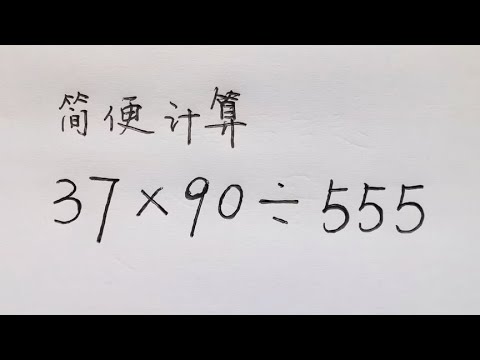 简便计算
37×90÷555